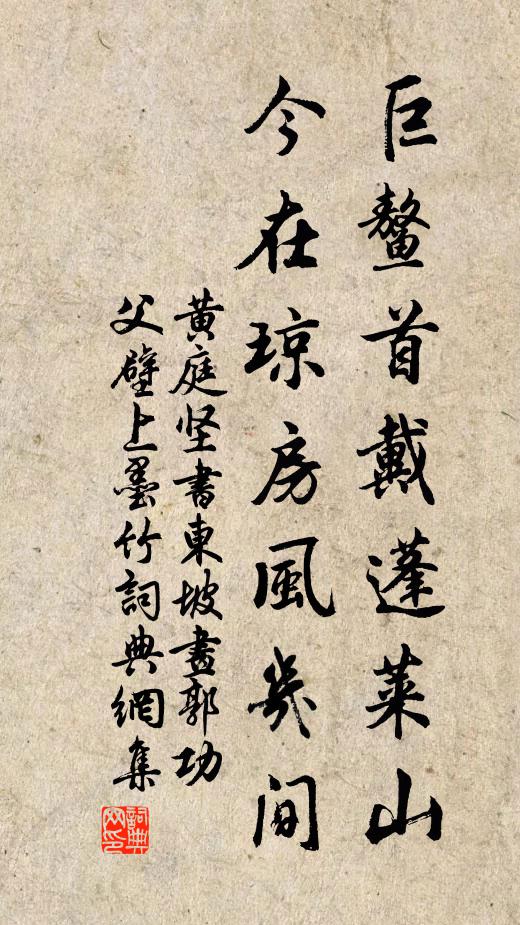 巨鳌首戴蓬莱山
今在琼房風幾间
黄庭坚書東坡畫郭功
父壁上墨竹詞典網集
詞典网印